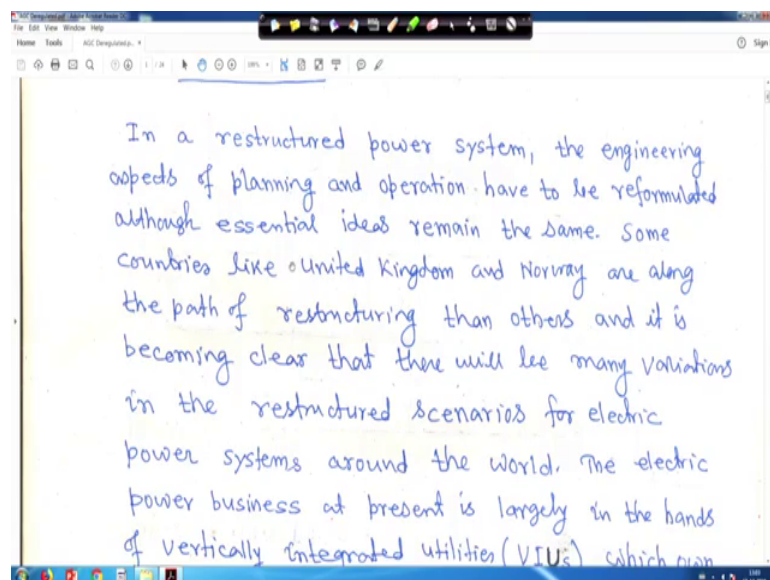 AGC Deregulated.pdf - Adobe Acrobat Reader DC
File Edit View Window Help
Home Tools AGC Deregulated.p... × Sign
In a restructured power system, the engineering
aspects of planning and operation have to be reformulated
although essential ideas remain the same. Some
countries like United Kingdom and Norway are along
the path of restructuring than others and it is
becoming clear that there will be many variations
in the restructured scenarios for electric
power systems around the world. The electric
power business at present is largely in the hands
of vertically integrated utilities (VIUs) which own